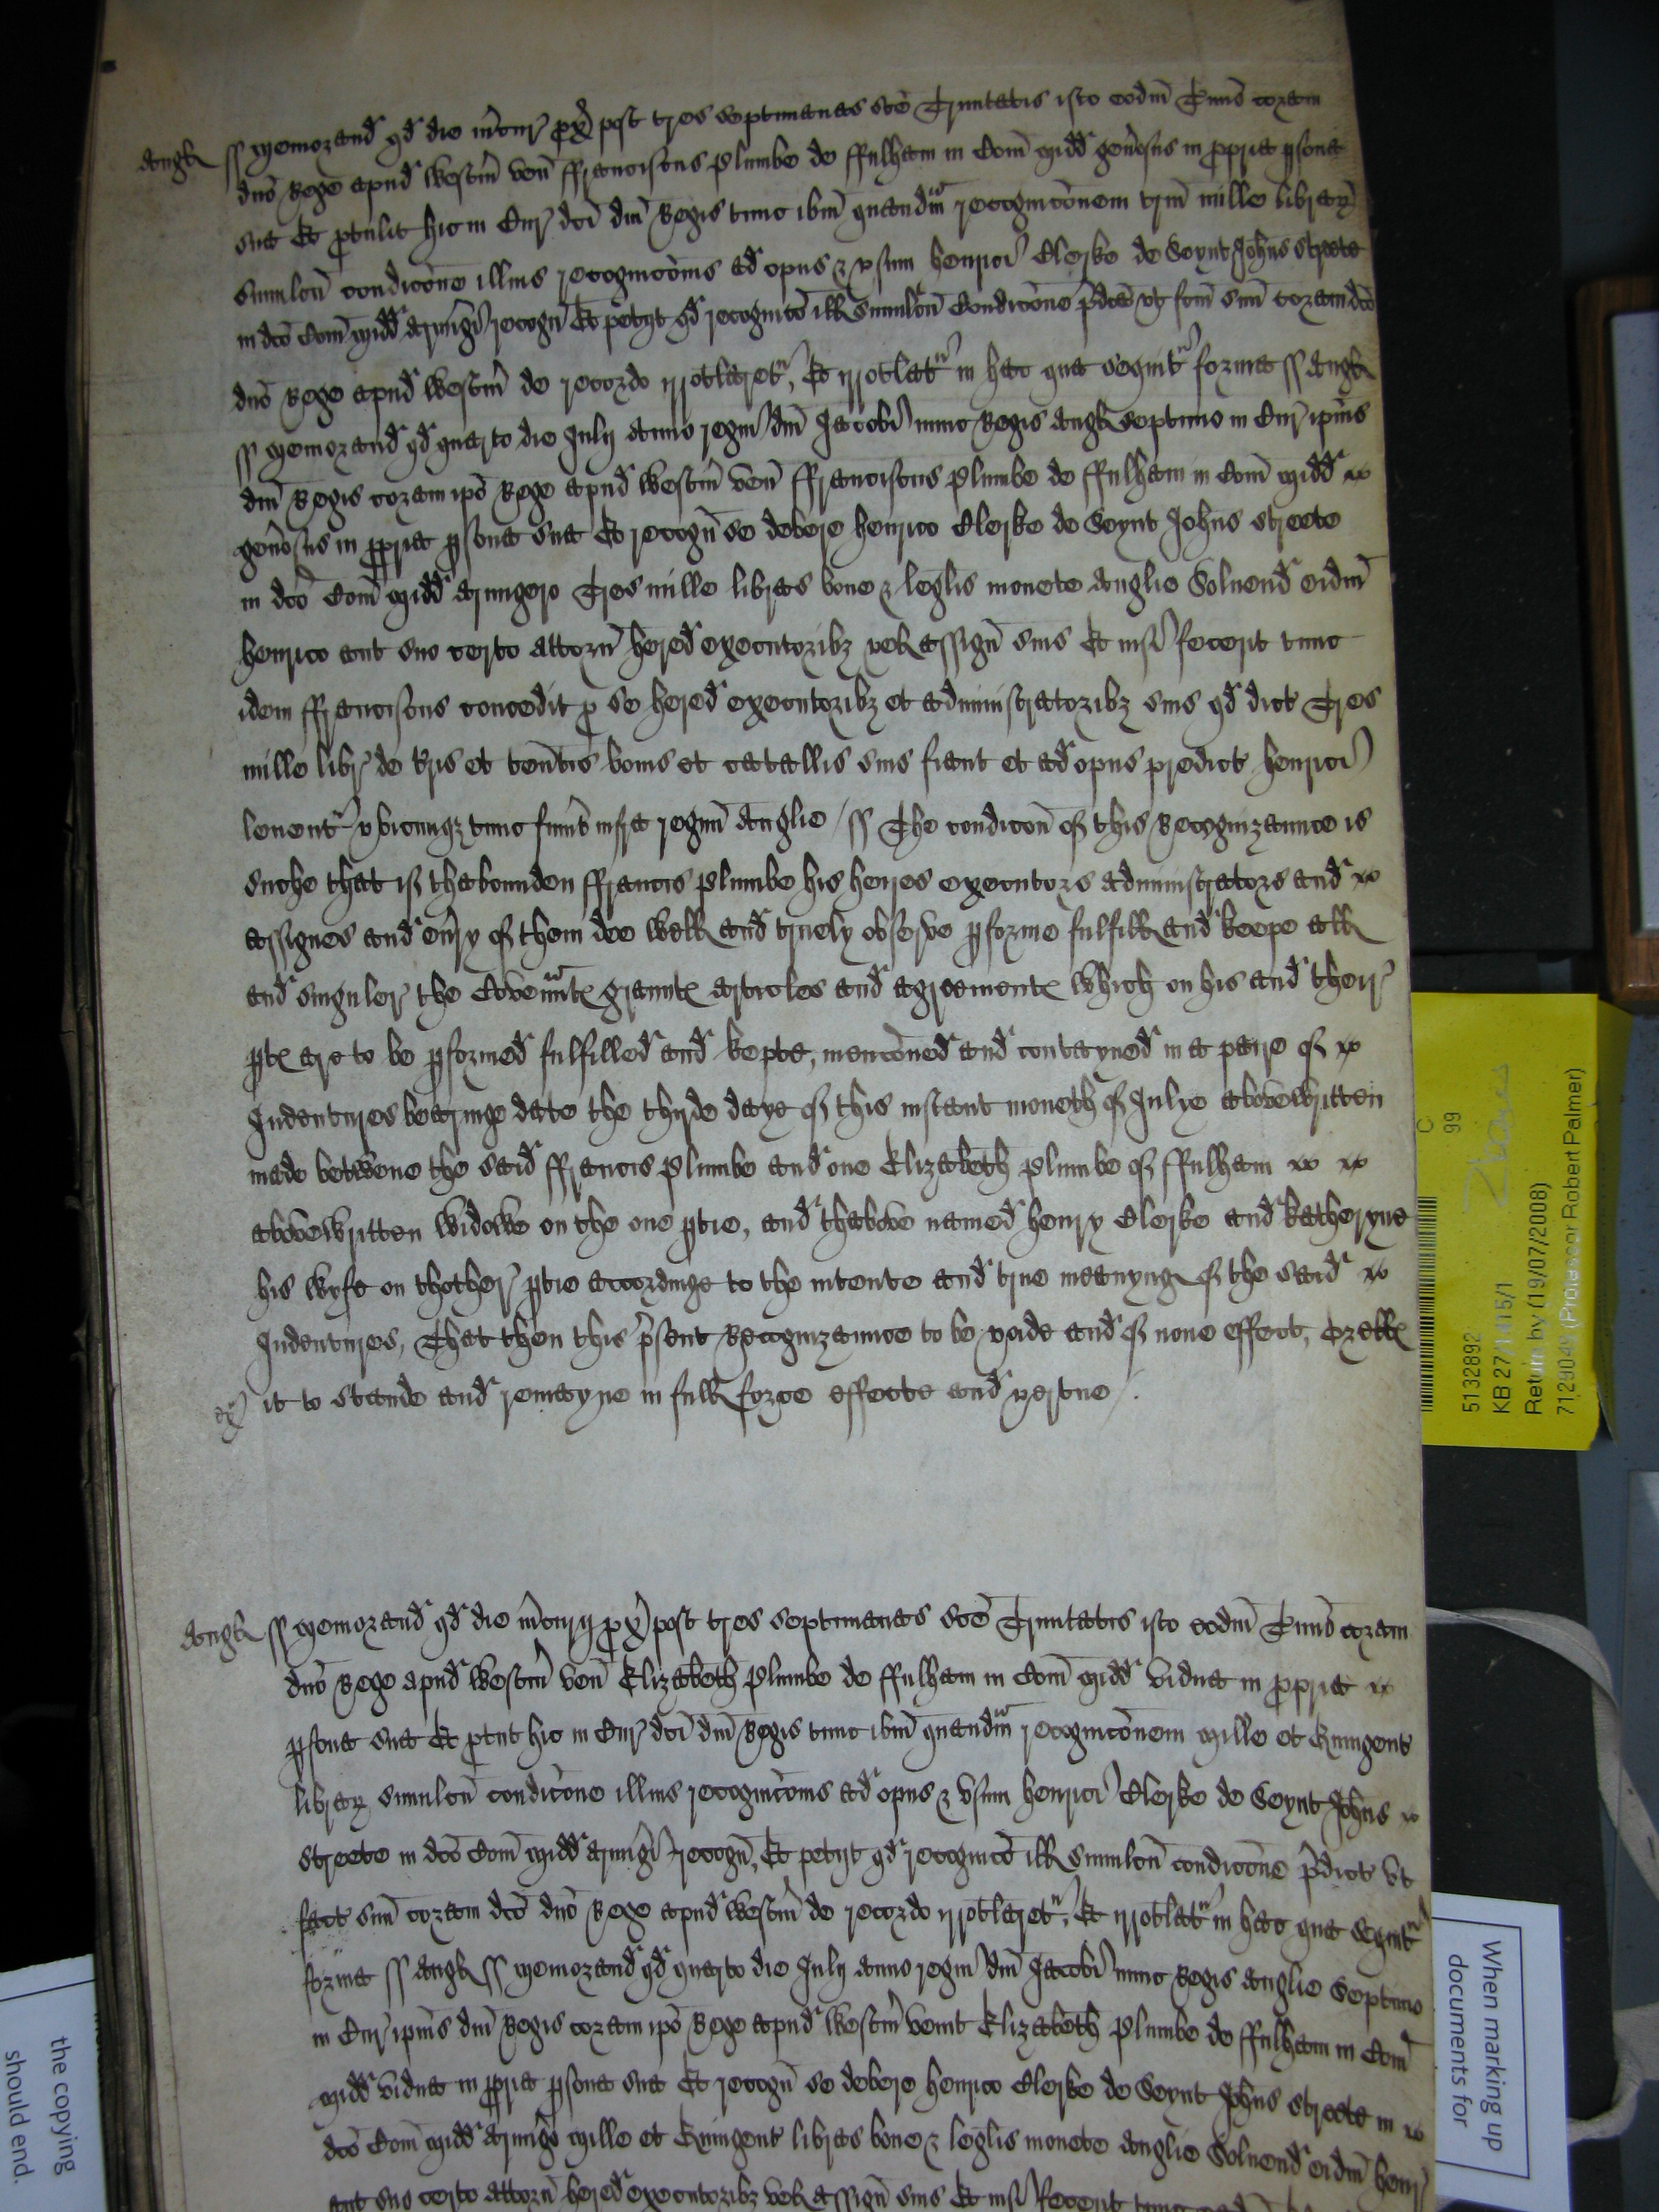 Angł ss Memorand qd die m̃cur px post tres septimanas sc̃e Trinitatis isto eodm̃ T̃mio coram
dño Rege apud Westm̃ veñ ffranciscus Plumbe de ffulham in Com̃ Midd geñosus in ppria psona
sua Et ptulit hic in Cur dc̃i dñi Regis tunc ibm̃ quandam recognic̃onem triu᷑ mille librar
simulcu᷑ condic̃one illius recognic̃onis ad opus & usum henrici Clerke de Seynt Johns streete
in dc̃o Com̃ Midd armiḡi recogn̄ Et petijt qd recognic̃o ill simulcu᷑ Condic̃one p̃dc̃a ut fc̃m sum̄ coram dc̃o
dño Rege apud Westm̃ de recordo irrotlaret, Et irrotlatr in hac qua sequitr forma ss Angł
ss Memorand qd quarto die Julij Anno regni dñi Jacobi nunc Regis Angł septimo in Cur ipius
dñi Regis coram ipo Rege apud Westm̃ veñ ffranciscus Plumbe de ffulham in Com̃ Midd
geñosus in ppria psona sua Et recogñ se debere henrico Clerke de Seynt Johns streete
in dc̃o Com̃ Midd Armigero Tres mille libras bone & leglis monete Anglie Soluend eidm̃
henrico aut suo certo attorñ hered executoribz vel assigñ suis Et nisi fecerit tunc
idem ffranciscus concedit p se hered executoribz et administratoribz suis qd dict Tres
mille libr de tris et tentis bonis et catallis suis fiant et ad opus predict henrici
leuent vbicunqz tunc fuint infra regnu᷑ Anglie / ss The condicoñ of this Recognizaunce is
suche that if thabounden ffrauncis Plumbe his heyres executors administrators and
assignes and eũy of them doe well and truely observe pforme fulfill and keepe all
and singuler the Covenntes grauntes articles and agreementes which on his and their
ptes are to be pformed fulfilled and kepte, menc̃oned and contayned in a paire of
Indentures bearinge date the thyrde daye of this instant moneth of Julye abovewritten
made betwene the said ffrauncis Plumbe and one Elizabeth Plumbe of ffulham
abovewritten widowe on the one ptie, and thabove named henry Clerke and Katheryne
his wyfe on thother ptie accordinge to the intente and true meanyng of the said
Indentures, That then this p̃sent Recognizaunce to be voide and of none effect, or elles
ex it to stande and remayne in full force effecte and vertue /.
Angł ss Memorand qd die m̃curij px post tres septimanas sc̃e Trinitatis isto eodm̃ T̃mio coram
dño Rege apud Westm̃ veñ Elizabeth Plumbe de ffulham in Com̃ Midd vidua in ppria
psona sua Et ptut hic in Cur dc̃i dñi Regis tunc ibm̃ quandam recognic̃onem Mille et Quingent
librar simulcu᷑ condic̃one illius recognic̃onis ad opus & vsum henrici Clerke de Seynt Johns
streete in dc̃o Com̃ Midd armiḡi recogñ, Et petijt qd recognic̃o ill simulcu᷑ condic̃one p̃dict vt
fact sum̄ coram dc̃o dño Rege apud Westm̃ de recordo irrotlaretr, Et irrotlatr in hac qua sequitr
forma ss Angł ss Memorand qd quarto die Julij Anno regni dñi Jacobi nunc Regis Anglie Septimo
in Cur ipius dñi Regis coram ipo Rege apud Westm̃ venit Elizabeth Plumbe de ffulham in Com̃
Midd vidua in ppria psona sua Et recogñ se debere henrico Clerke de Seynt Johns streete in
dc̃o Com̃ Midd Armiḡo Mille et Quingent libras bone & leglis monete Anglie Soluend eidm̃ henr
aut suo certo attorñ hered executoribz vel Assigñ suis Et nisi fecerit tunc
C
99
5132892
KB 27/1415/1
Return by (19/07/2008)
712904 (Professor Robert Palmer)
When marking up
documents for
the copying
should end.